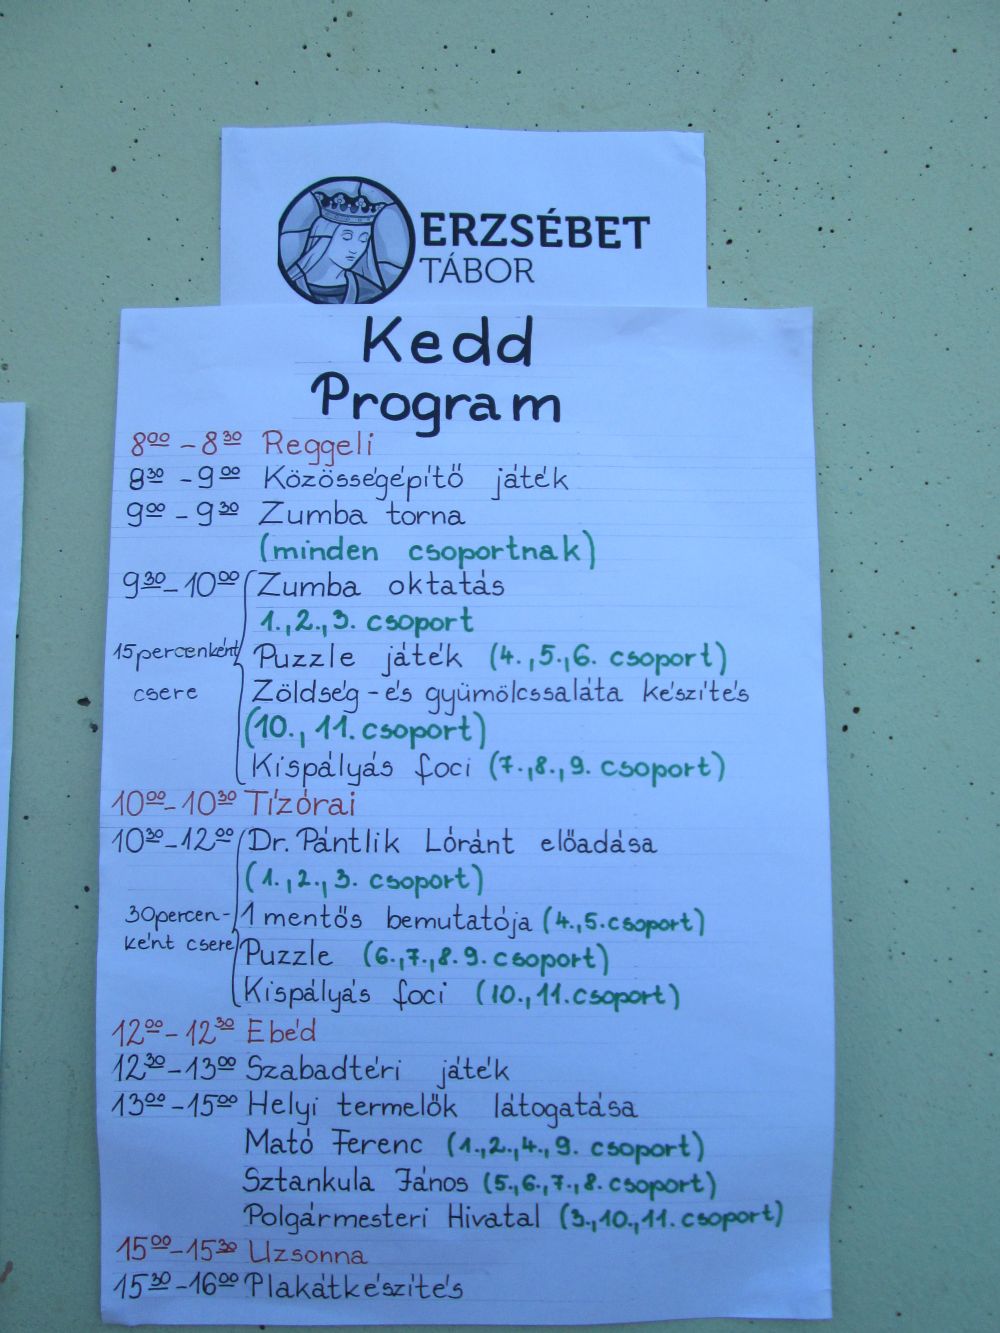 ERZSÉBET
TÁBOR
Kedd
Program
8⁰⁰ - 8³⁰ Reggeli
8³⁰ - 9⁰⁰ Közösségépítő játék
9⁰⁰ - 9³⁰ Zumba torna
(minden csoportnak)
9³⁰ - 10⁰⁰ Zumba oktatás
1.,2.,3. csoport
15 percenként Puzzle játék (4.,5.,6. csoport)
csere Zöldség - és gyümölcssaláta készítés
(10., 11. csoport)
Kispályás foci (7.,8.,9. csoport)
10⁰⁰ - 10³⁰ Tízórai
10³⁰ - 12⁰⁰ Dr. Pántlik Lóránt előadása
(1.,2.,3. csoport)
30percen- 1 mentős bemutatója (4.,5. csoport)
ként csere Puzzle (6.,7.,8.9. csoport)
Kispályás foci (10.,11. csoport)
12⁰⁰ - 12³⁰ Ebéd
12³⁰ - 13⁰⁰ Szabadtéri játék
13⁰⁰ - 15⁰⁰ Helyi termelők látogatása
Mató Ferenc (1.,2.,4.,9. csoport)
Sztankula János (5.,6.,7.,8. csoport)
Polgármesteri Hivatal (3.,10.,11. csoport)
15⁰⁰ - 15³⁰ Uzsonna
15³⁰ - 16⁰⁰ Plakátkészítés